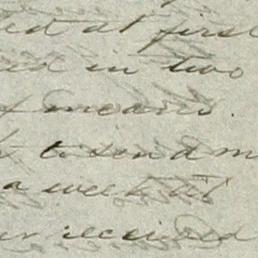 at first
in two
means.
to send m
a week
received